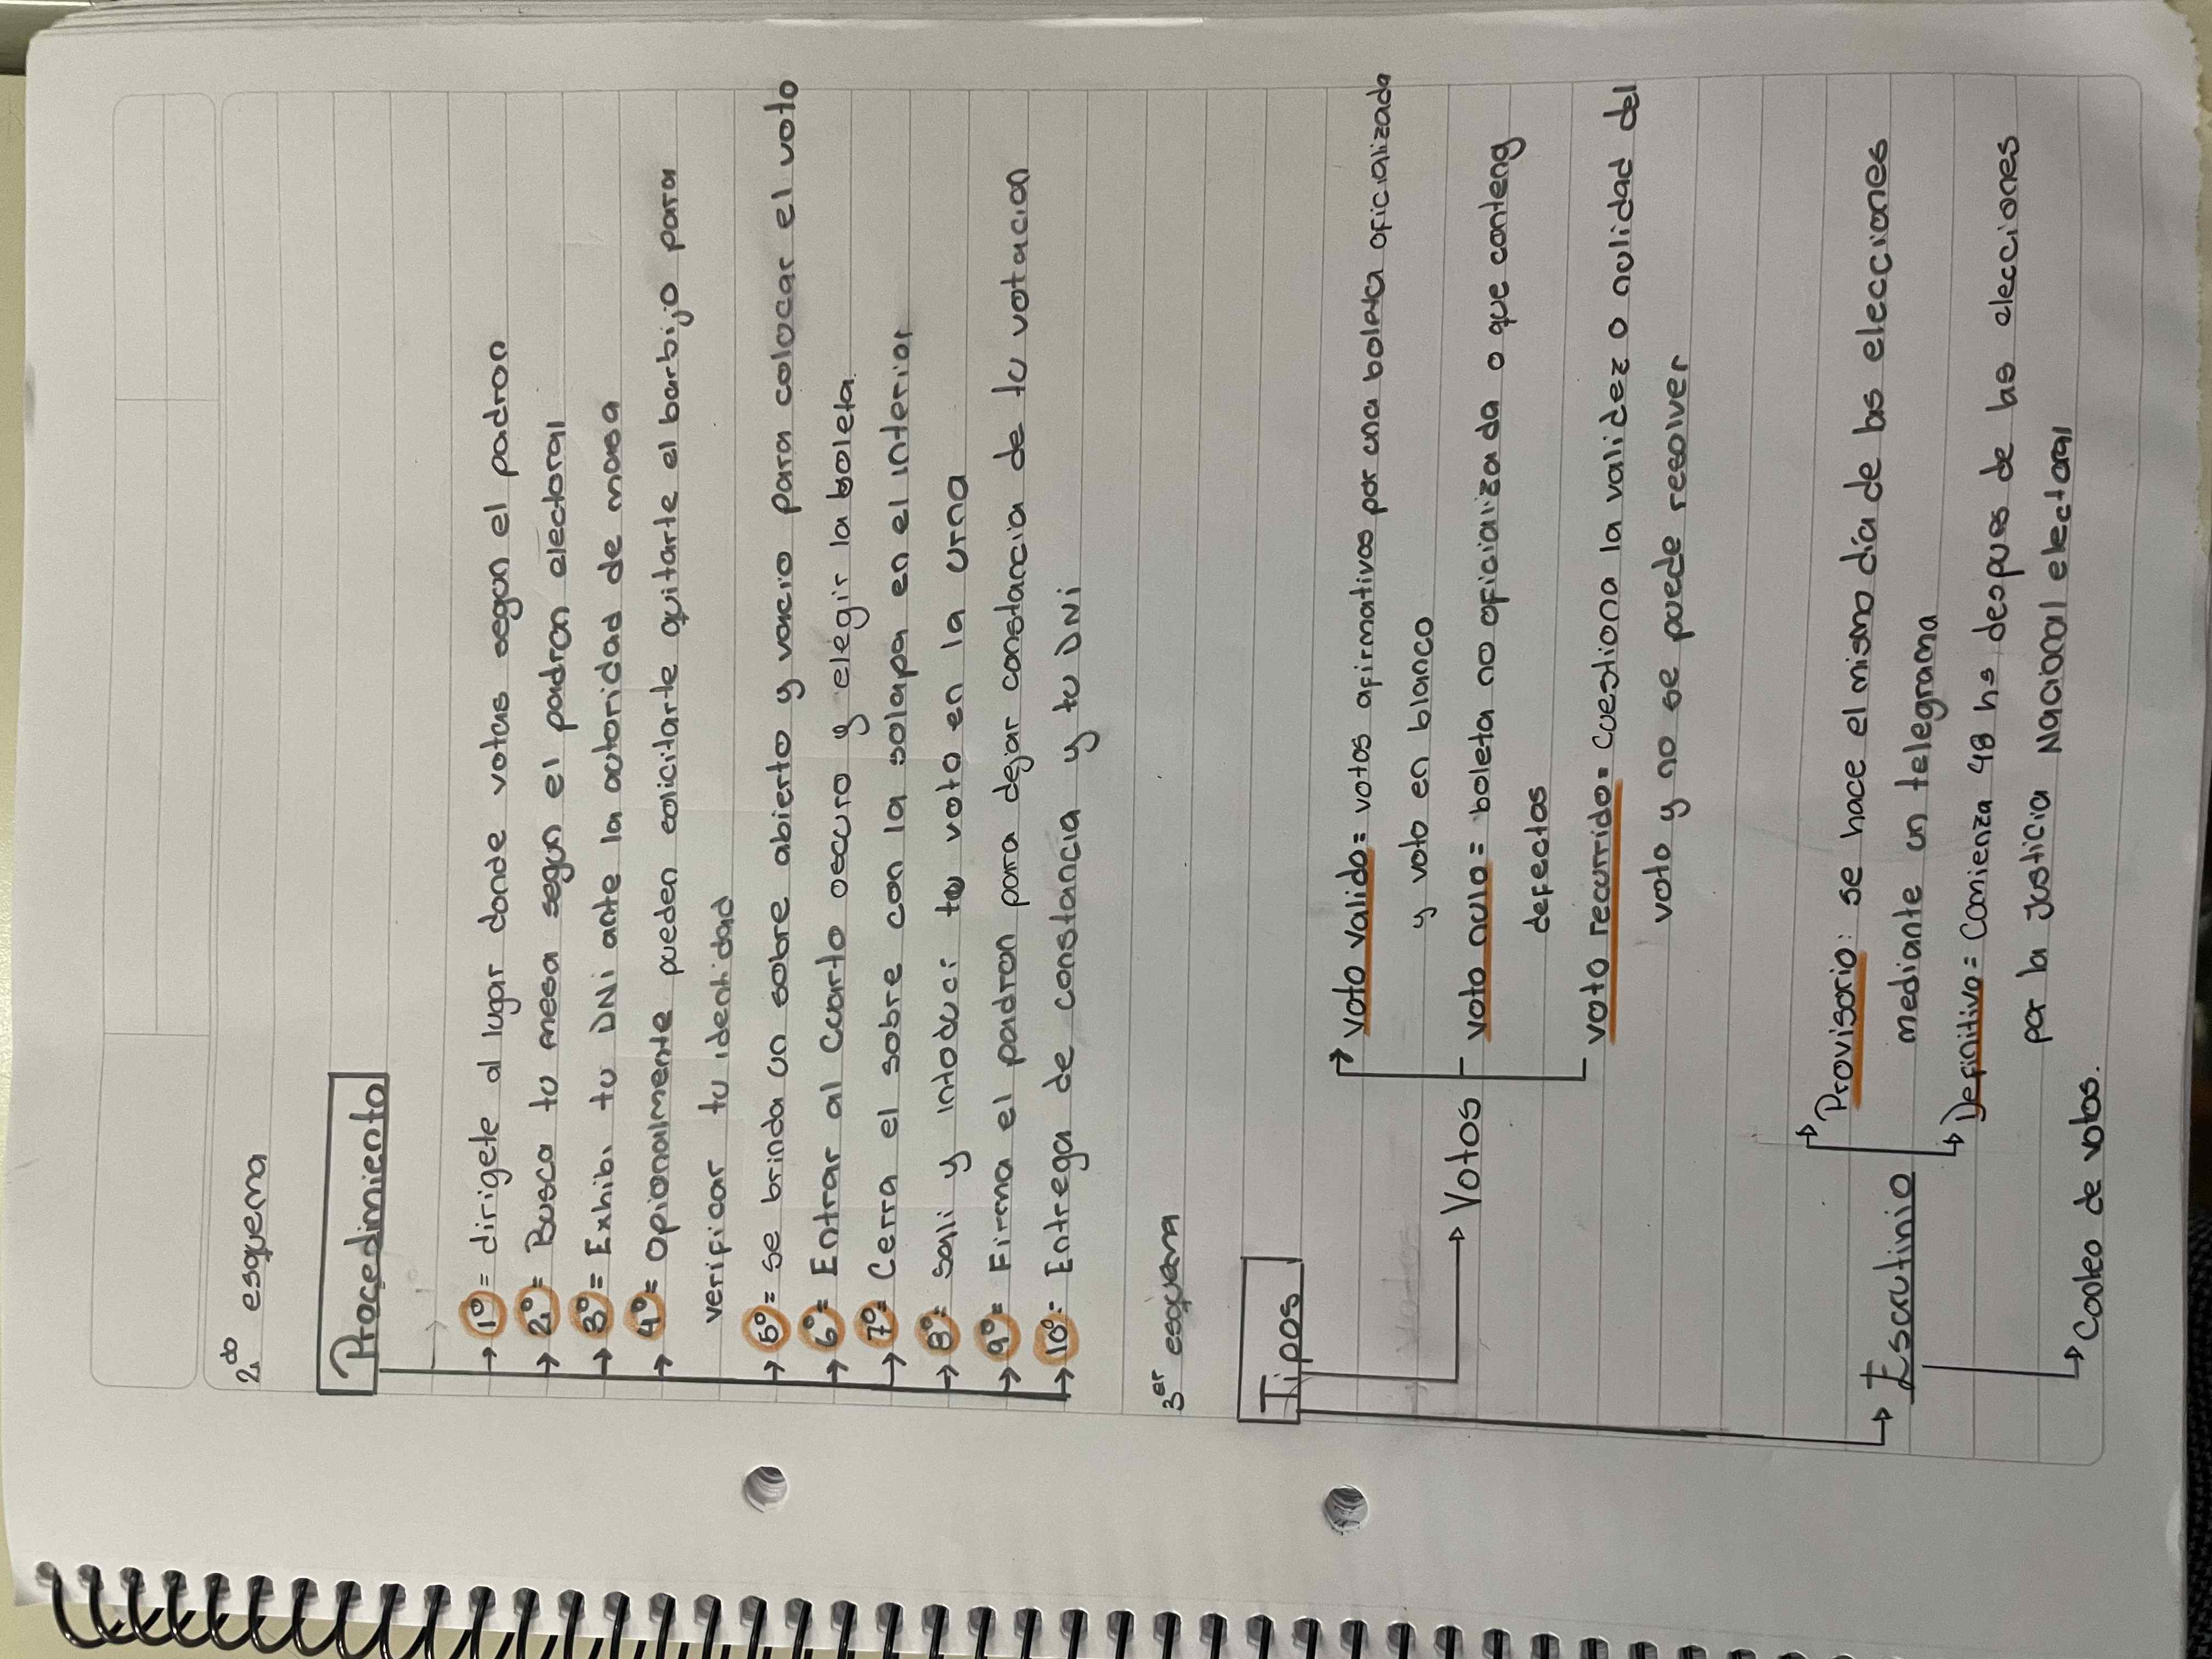 2do esquema
Procedimiento
1º = dirigete al lugar donde votas segun el padron
2º = Busca tu mesa segun el padron electoral
3º = Exhibi tu DNi ante la autoridad de mesa
4º = Opionalmente pueden solicitarte quitarte el barbijo para
verificar tu identidad
5º = se brinda un sobre abierto y vacio para colocar el voto
6º = Entrar al cuarto oscuro y elegir la boleta
7º = Cerra el sobre con la solapa en el interior
8º = Sali y intoduci tu voto en la urna
9º = Firma el padron para dejar constancia de tu votacion
10º = Entrega de constancia y tu DNi
3er esquema
Tipos
Votos
Voto valido = votos afirmativos por una boleta oficializada
y voto en blanco
voto nulo = boleta no oficializada o que conteng
defectos
voto recurrido = cuestiona la validez o nulidad del
voto y no se puede resolver
Escrutinio
Provisorio: se hace el mismo día de las elecciones
mediante un telegrama
Definitivo = Comienza 48 hs despues de las elecciones
por la justicia Nacional electoral
Conteo de votos.